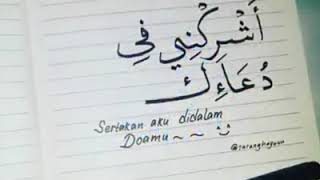 أَشْرِكْنِي فِي
دُعَاءِكَ
Sertakan aku didalam
Doamu ~ ~ ت